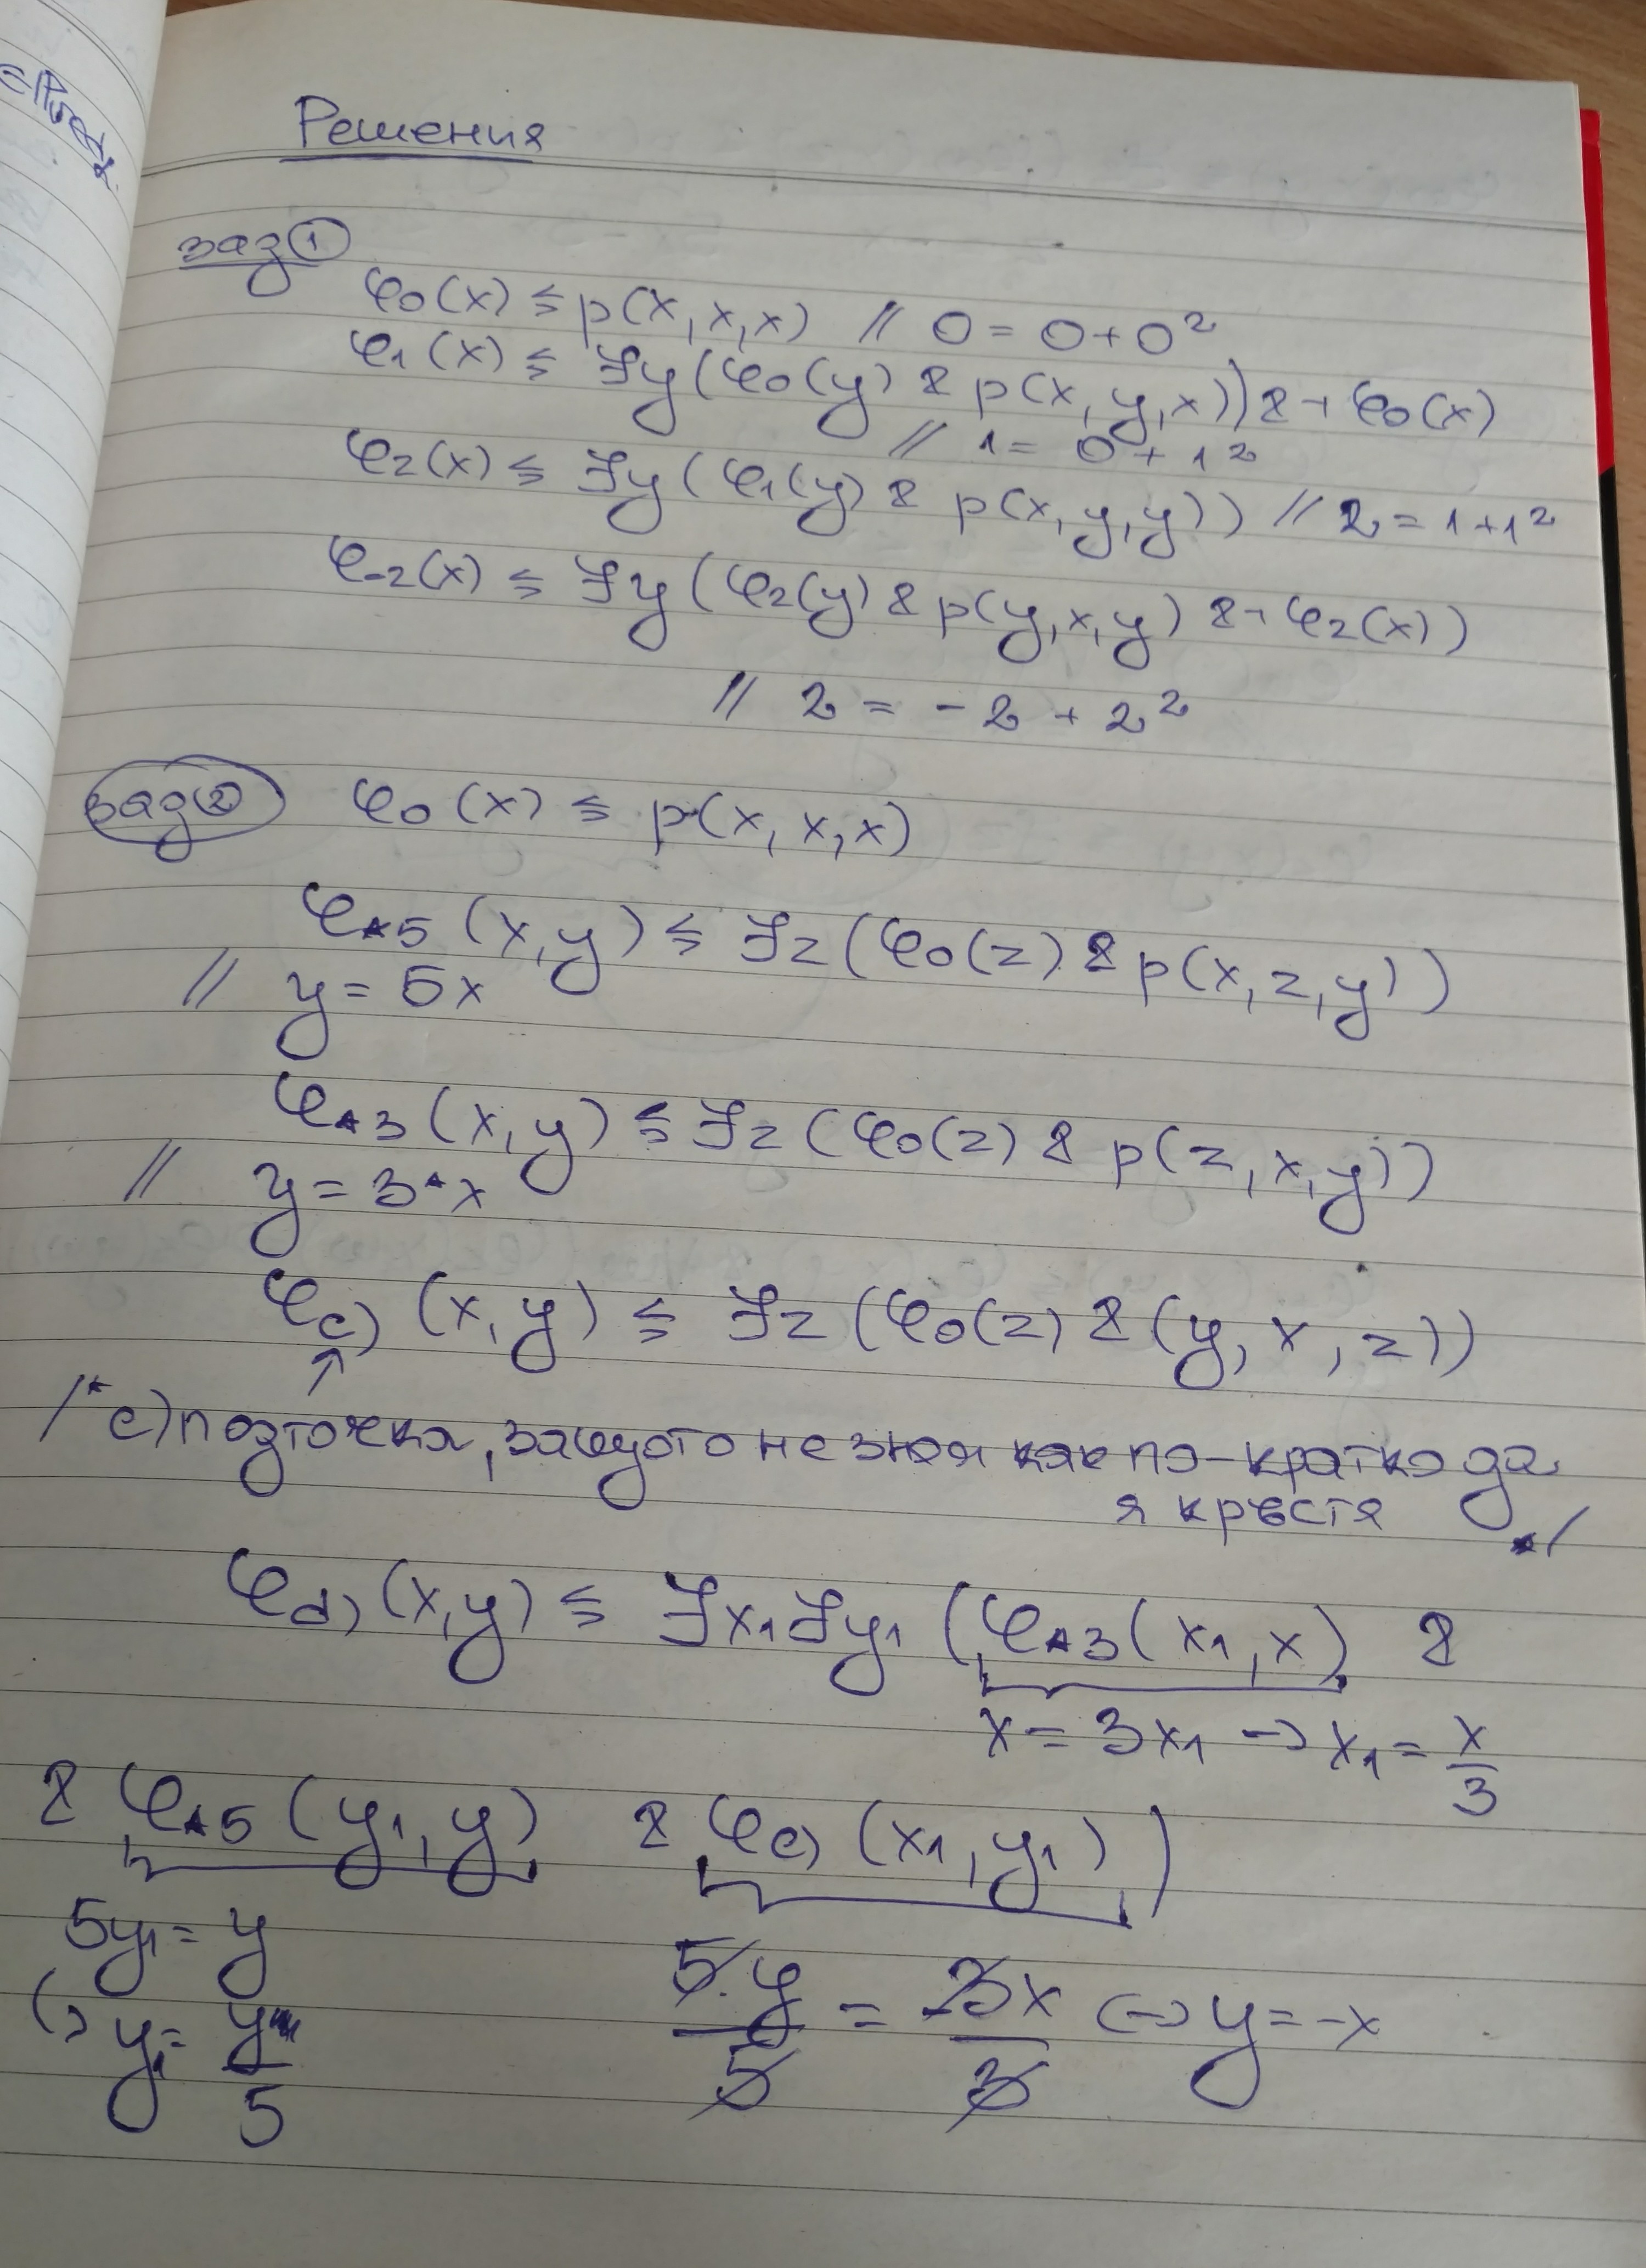 Решения
зад ①
φ₀(x) ≤ p(x, x, x) // 0 = 0 + 0²
φ₁(x) ≤ ∃y(φ₀(y) & p(x, y, x)) & ¬ φ₀(x)
// 1 = 0 + 1²
φ₂(x) ≤ ∃y(φ₁(y) & p(x, y, y)) // 2 = 1 + 1²
φ₋₂(x) ≤ ∃y(φ₂(y) & p(y, x, y) & ¬ φ₂(x))
// 2 = - 2 + 2²
зад ② φ₀(x) ≤ p(x, x, x)
φ*5(x, y) ≤ ∃z(φ₀(z) & p(x, z, y))
// y = 5x
φ*3(x, y) ≤ ∃z(φ₀(z) & p(z, x, y))
// y = 3*x
φc)(x, y) ≤ ∃z(φ₀(z) & (y, x, z))
↑
/* c) подточка, защото не зная как по-кратко да
я кръстя */
φd)(x, y) ≤ ∃x₁∃y₁(φ*3(x₁, x) &
x = 3x₁ → x₁ = x/3
& φ*5(y₁, y) & φc)(x₁, y₁))
5y₁ = y
↔ y₁ = y/5
5.y/5 = -3x/3 ↔ y = -x